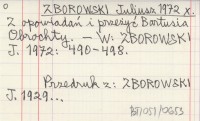 ZBOROWSKI Juliusz 1972 x.
Z opowiadań i przeżyć Bartusia
Obrochty. - W: ZBOROWSKI
J. 1972: 490-498.
Przedruk z: ZBOROWSKI
J. 1929...
BT/051/0653